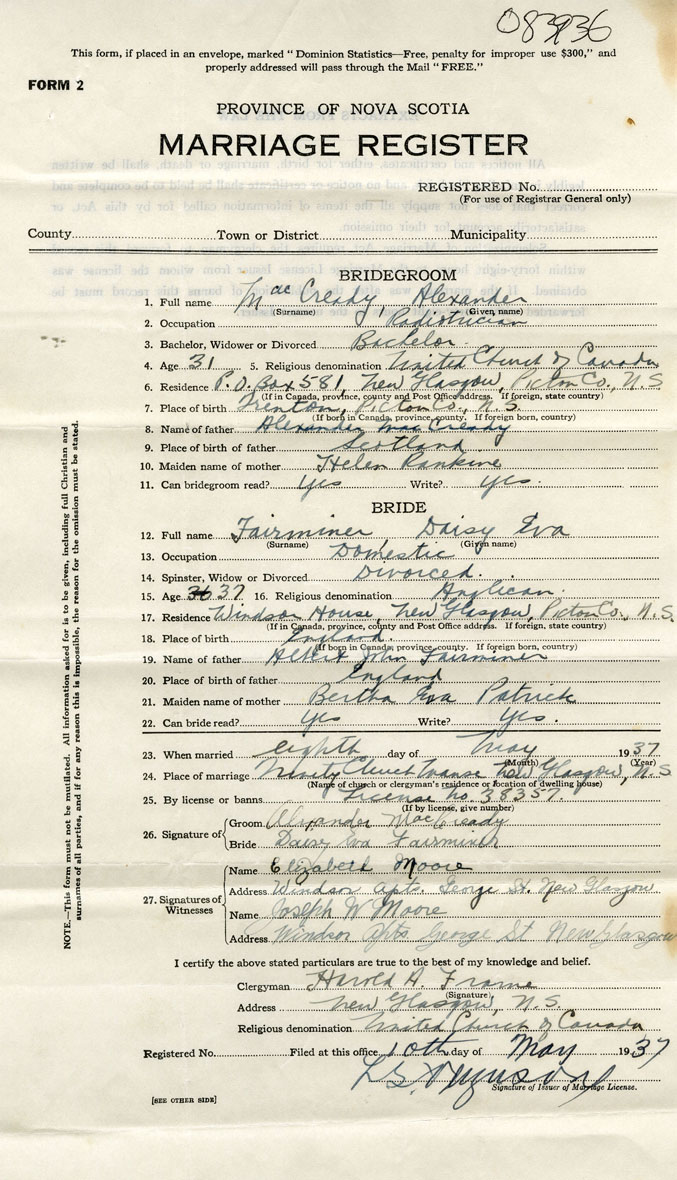 083936
This form, if placed in an envelope, marked "Dominion Statistics—Free, penalty for improper use $300," and
properly addressed will pass through the Mail "FREE."
FORM 2
PROVINCE OF NOVA SCOTIA
MARRIAGE REGISTER
REGISTERED No.
(For use of Registrar General only)
County Town or District Municipality
BRIDEGROOM
1. Full name MacCready, Alexander
(Surname) (Given name)
2. Occupation Radiotrician
3. Bachelor, Widower or Divorced Bachelor
4. Age 31 5. Religious denomination United Church of Canada
6. Residence P.O. Box 581, New Glasgow, Pictou Co., N.S.
(If in Canada, province, county and Post Office address. If foreign, state country)
7. Place of birth Trenton, Pictou Co., N.S.
(If born in Canada, province, county. If foreign born, country)
8. Name of father Alexander MacCready
9. Place of birth of father Scotland
10. Maiden name of mother Helen Rankine
11. Can bridegroom read? Yes Write? Yes.
BRIDE
12. Full name Fairminer Daisy Eva
(Surname) (Given name)
13. Occupation Domestic
14. Spinster, Widow or Divorced Divorced.
15. Age 36 37 16. Religious denomination Anglican.
17. Residence Windsor House, New Glasgow, Pictou Co., N.S.
(If in Canada, province, county and Post Office address. If foreign, state country)
18. Place of birth England.
(If born in Canada, province, county. If foreign born, country)
19. Name of father Albert John Fairminer
20. Place of birth of father England
21. Maiden name of mother Bertha Eva Patrick
22. Can bride read? Yes Write? Yes.
23. When married eighth day of May 1937
(Month) (Year)
24. Place of marriage Trinity Church Manse New Glasgow, N.S
(Name of church or clergyman's residence or location of dwelling house)
25. By license or banns License no. 38357.
(If by license, give number)
26. Signature of { Groom Alexander MacCready
Bride Daisy Eva Fairminer
27. Signatures of Witnesses { Name Elizabeth Moore
Address Windsor Apts. George St. New Glasgow
Name Joseph W Moore
Address Windsor Apts George St New Glasgow
I certify the above stated particulars are true to the best of my knowledge and belief.
Clergyman Harold A. Frame
(Signature)
Address New Glasgow, N.S.
Religious denomination United Church of Canada
Registered No. Filed at this office 10th day of May 1937
Signature of Issuer of Marriage License.
[SEE OTHER SIDE]
NOTE.—This form must not be mutilated. All information asked for is to be given, including full Christian and
surnames of all parties, and if for any reason this is impossible, the reason for the omission must be stated.